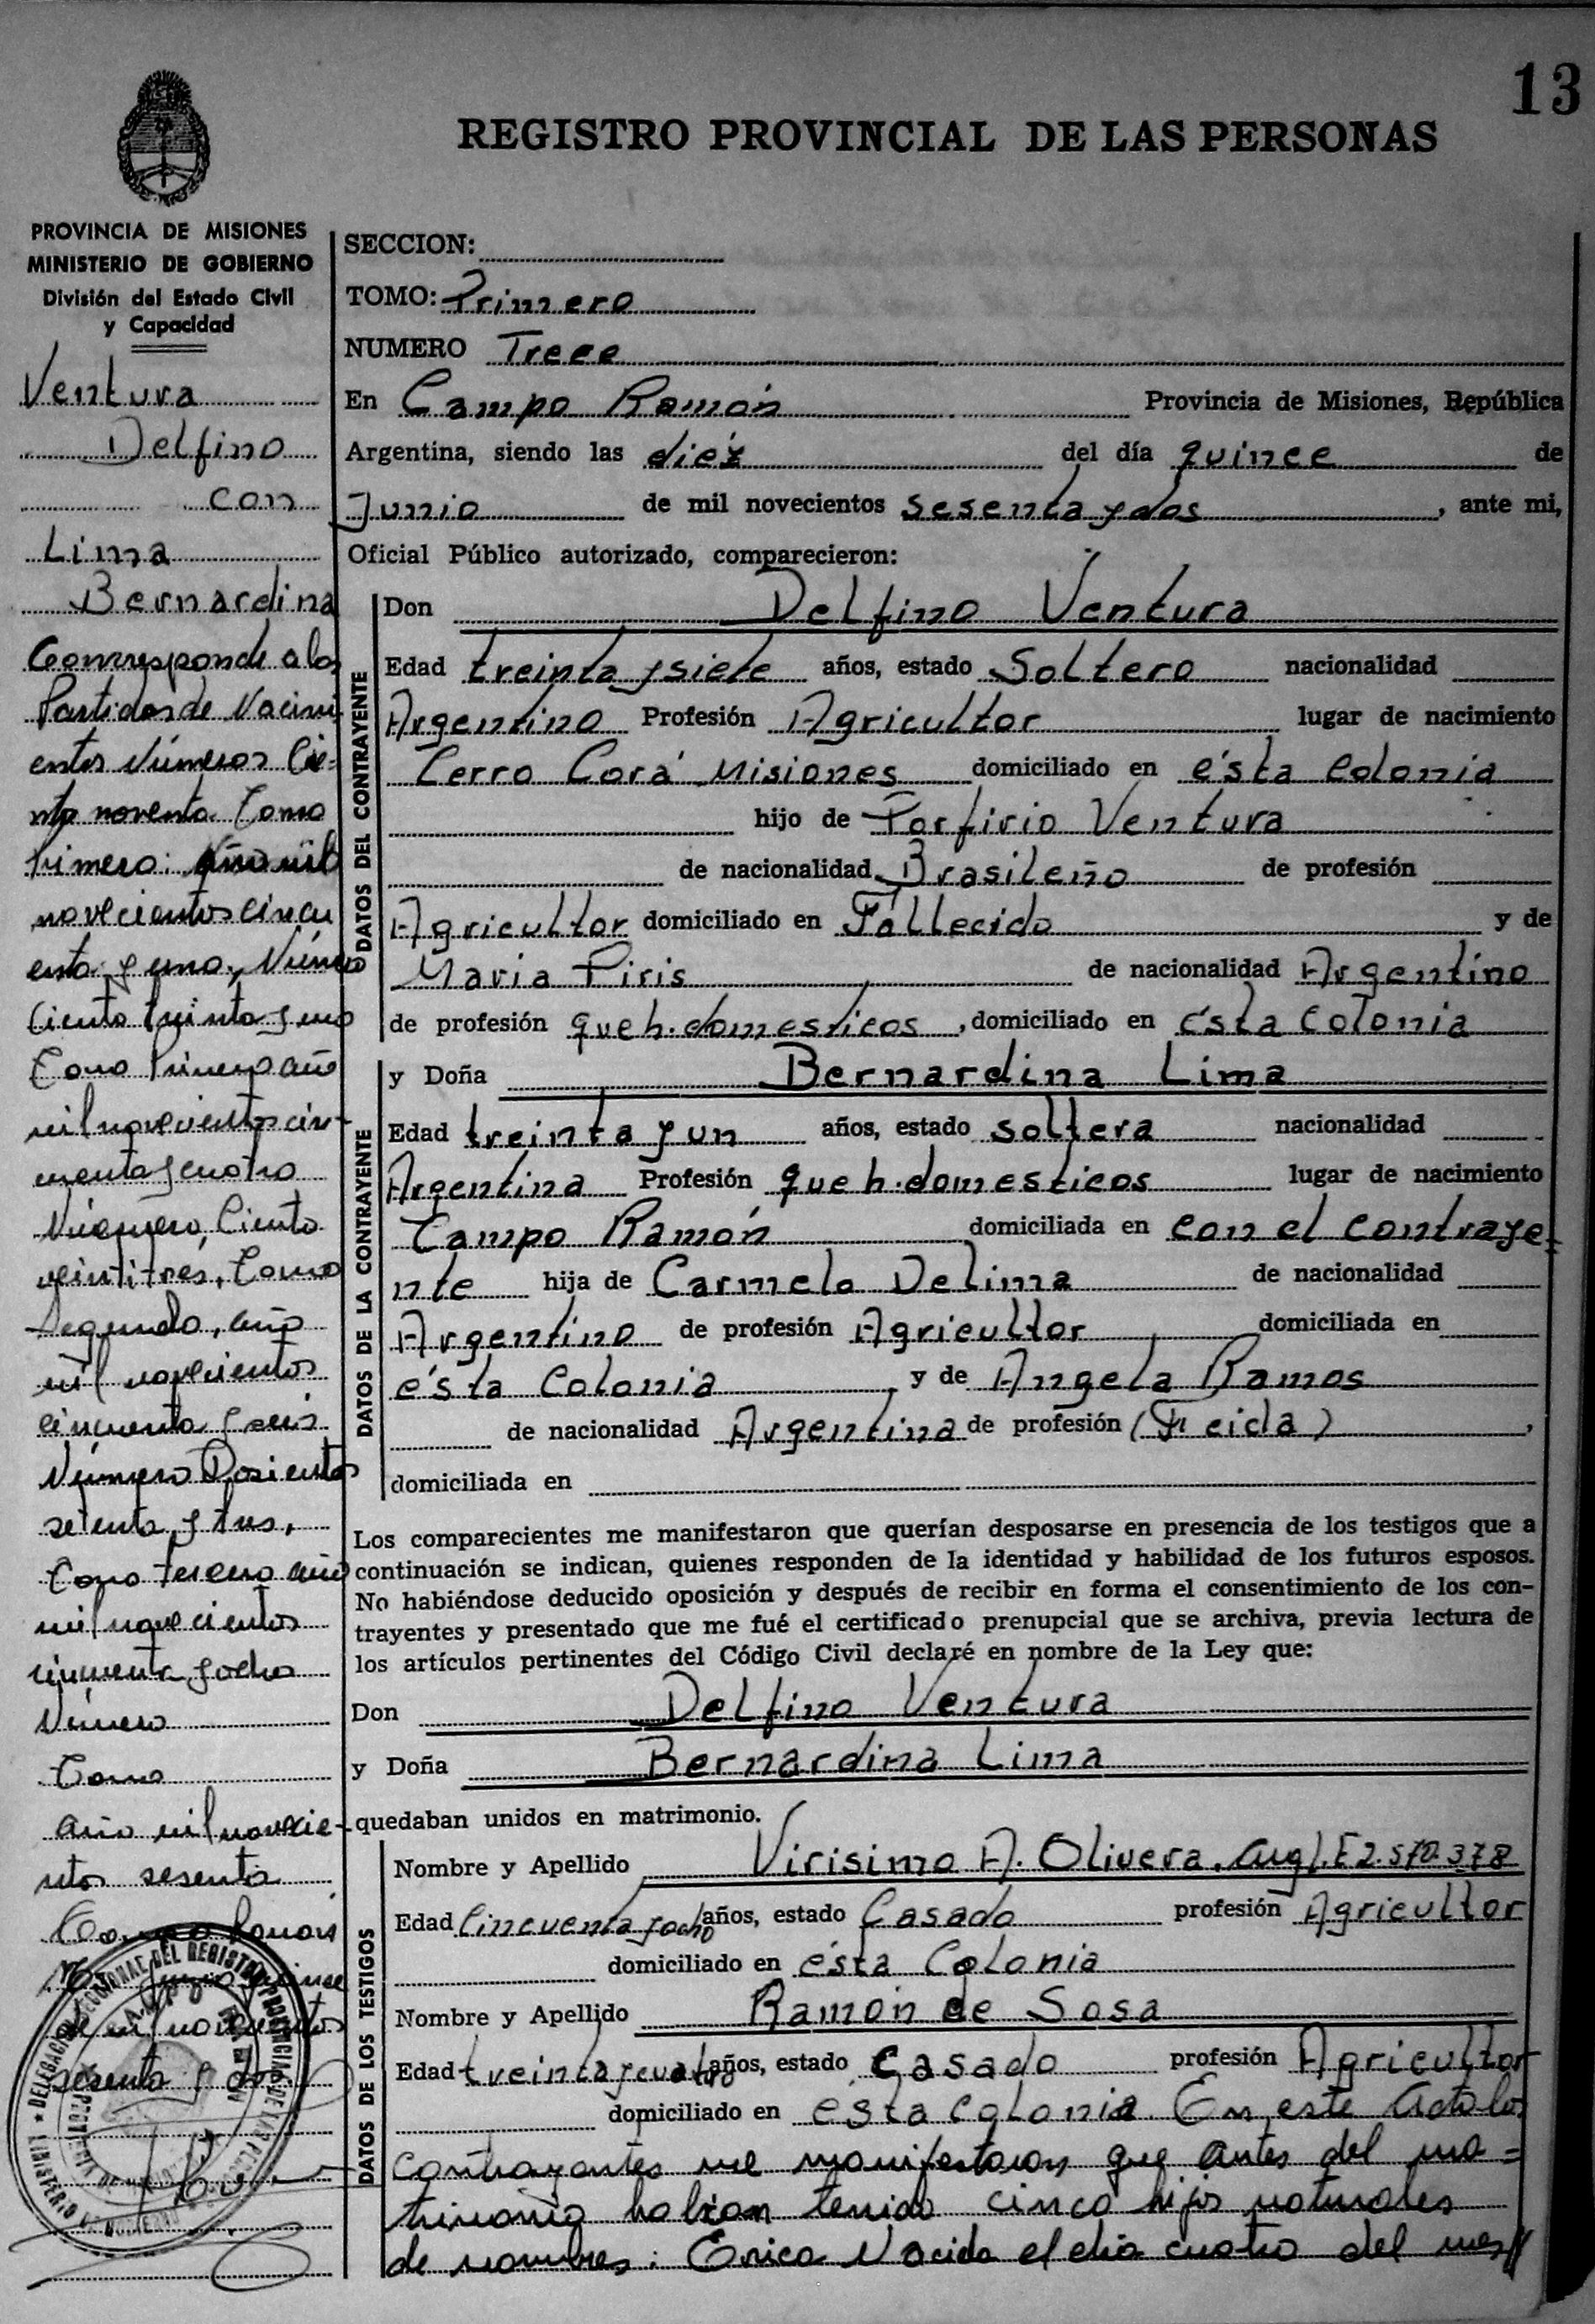 13
REGISTRO PROVINCIAL DE LAS PERSONAS
PROVINCIA DE MISIONES
MINISTERIO DE GOBIERNO
División del Estado Civil
y Capacidad
Ventura
Delfino
con
Lima
Bernardina
Corresponde a las
Partidas de Nacimi
entos Números Cie-
nto noventa Tomo
Primero: Año mil
novecientos cincu
enta y uno, Número
Ciento treinta y uno
Tomo Primero año
mil novecientos cin-
cuenta y cuatro
Número, Ciento
veintitres, Tomo
Segundo, año
mil novecientos
cincuenta y seis
Número Dosientos
setenta y tres,
Tomo tercero año
mil novecientos
cincuenta y ocho
Número
Tomo
año mil novecie-
ntos sesenta
Campo Ramón
Junio quince
de mil novecientos
sesenta y dos
SECCION:
TOMO: Primero
NUMERO Trece
En Campo Ramón Provincia de Misiones, República
Argentina, siendo las diéz del día quince de
Junio de mil novecientos sesenta y dos, ante mi,
Oficial Público autorizado, comparecieron:
DATOS DEL CONTRAYENTE
Don Delfino Ventura
Edad treinta y siete años, estado Soltero nacionalidad
Argentino Profesión Agricultor lugar de nacimiento
Cerro Corá Misiones domiciliado en ésta Colonia
hijo de Porfirio Ventura
de nacionalidad Brasileño de profesión
Agricultor domiciliado en Fallecido y de
Maria Piris de nacionalidad Argentino
de profesión queh. domesticos, domiciliado en ésta Colonia
DATOS DE LA CONTRAYENTE
y Doña Bernardina Lima
Edad treinta y un años, estado soltera nacionalidad
Argentina Profesión queh. domesticos lugar de nacimiento
Campo Ramón domiciliada en con el contraye-
nte hija de Carmelo Delima de nacionalidad
Argentino de profesión Agricultor domiciliada en
ésta Colonia, y de Angela Ramos
de nacionalidad Argentina de profesión (F cida),
domiciliada en
Los comparecientes me manifestaron que querían desposarse en presencia de los testigos que a
continuación se indican, quienes responden de la identidad y habilidad de los futuros esposos.
No habiéndose deducido oposición y después de recibir en forma el consentimiento de los con-
trayentes y presentado que me fué el certificado prenupcial que se archiva, previa lectura de
los artículos pertinentes del Código Civil declaré en nombre de la Ley que:
Don Delfino Ventura
y Doña Bernardina Lima
quedaban unidos en matrimonio.
DATOS DE LOS TESTIGOS
Nombre y Apellido Virisimo A. Olivera. 2.570.378
Edad Cincuenta y ocho años, estado Casado profesión Agricultor
domiciliado en ésta Colonia
Nombre y Apellido Ramón de Sosa
Edad treinta y cuatro años, estado Casado profesión Agricultor
domiciliado en ésta colonia. En este Acto los
contrayentes me manifestaron que antes del ma-
trimonio habian tenido cinco hijos naturales
de nombres: Erica Nacida el dia cuatro del mes//